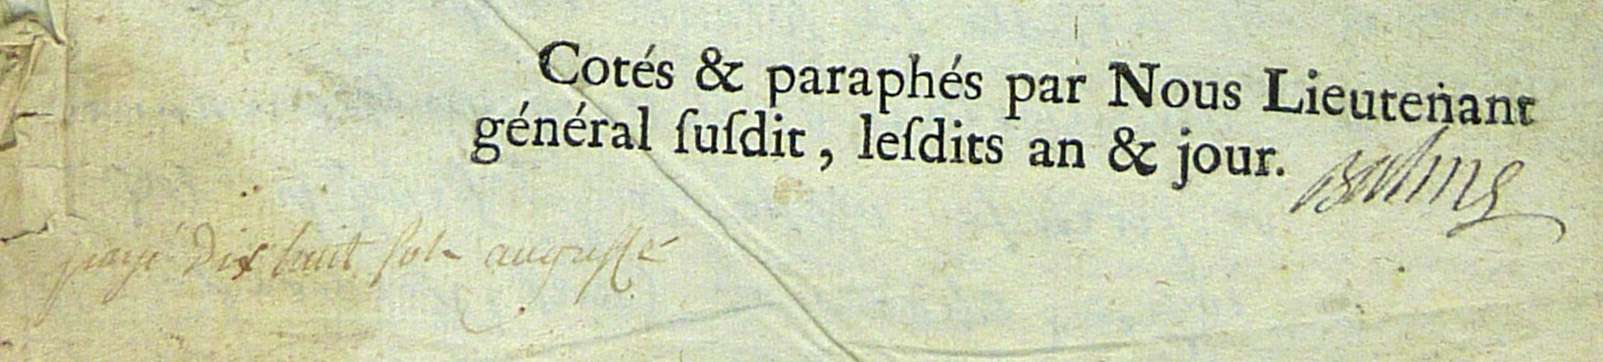 Cotés & paraphés par Nous Lieutenant
général ſuſdit, leſdits an & jour.
payé Dix huit ſols auguſte